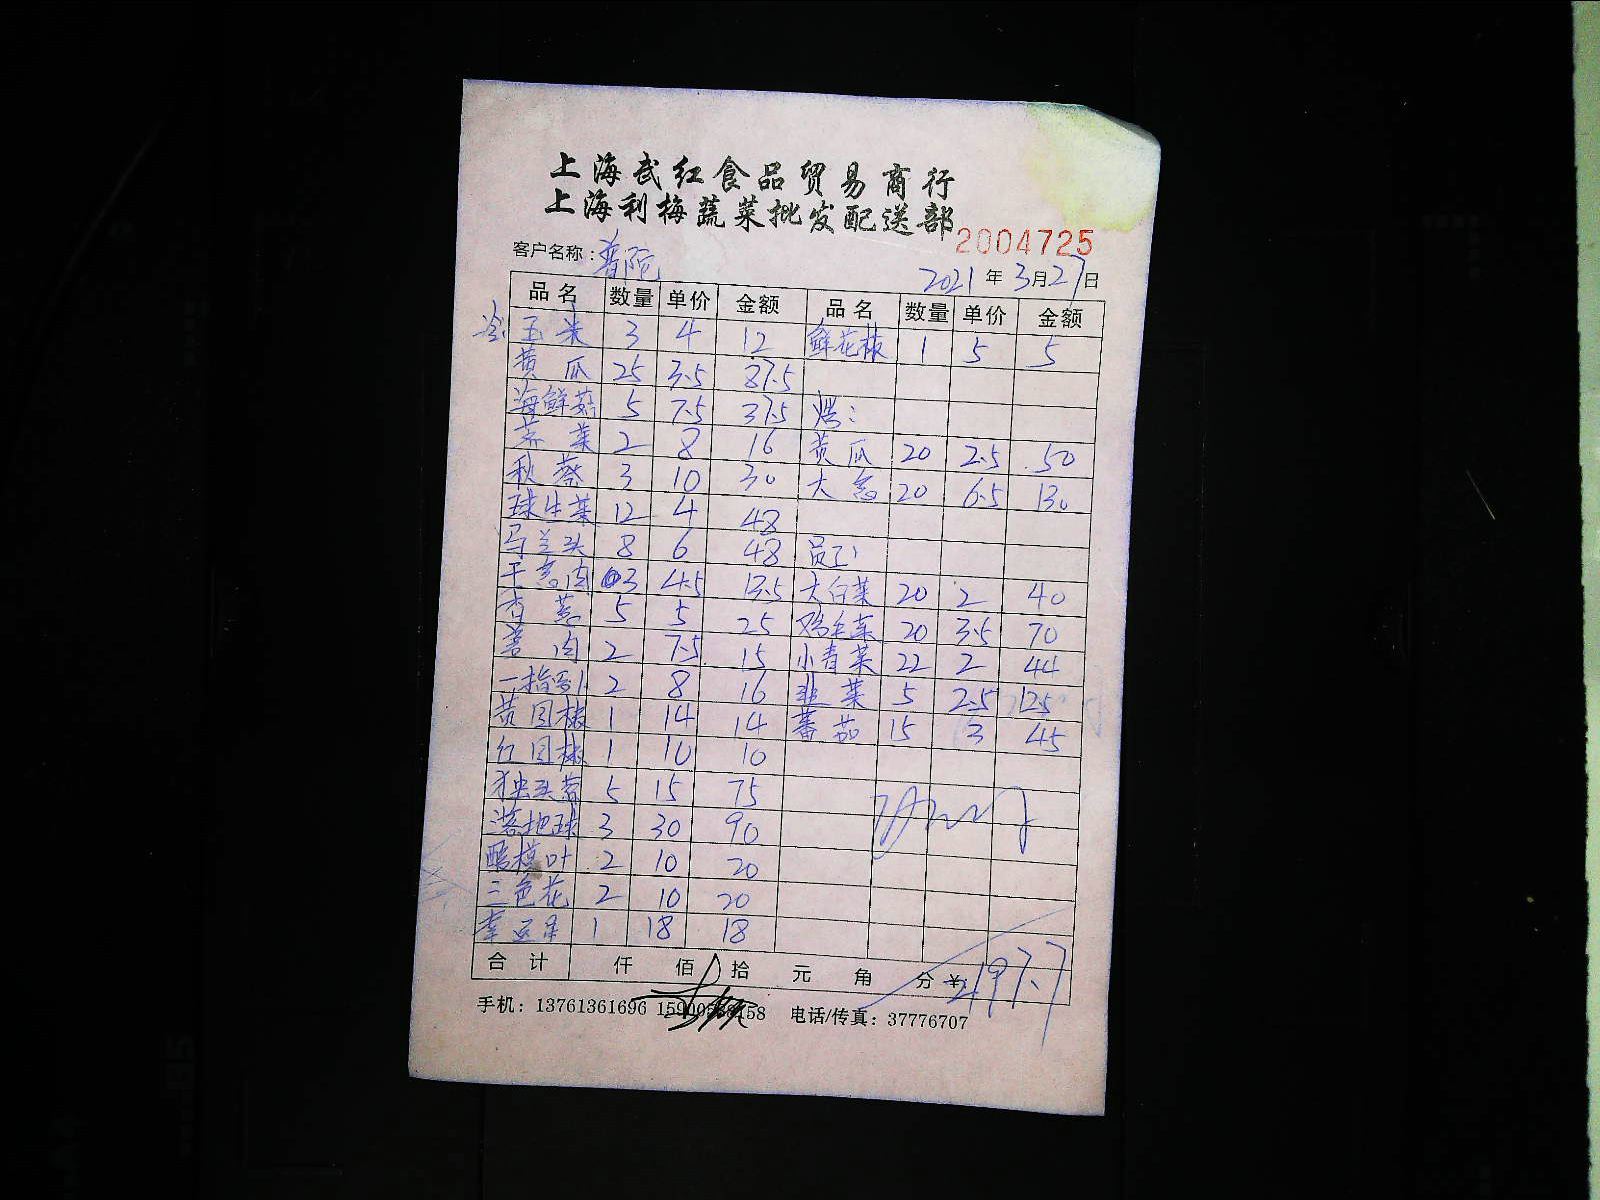 上海武红食品贸易商行
上海利梅蔬菜批发配送部
2004725
客户名称：普陀
2021年3月27日
品名 数量 单价 金额 品名 数量 单价 金额
玉米 3 4 12 鲜花椒 1 5 5
黄瓜 25 3.5 87.5
海鲜菇 5 7.5 37.5
菜 2 8 16 黄瓜 20 2.5 50
秋葵 3 10 30 大葱 20 6.5 130
球生菜 12 4 48
马兰头 8 6 48 员工:
干葱肉 3 4.5 13.5 大白菜 20 2 40
香葱 5 5 25 鸡毛菜 20 3.5 70
姜肉 2 7.5 15 小青菜 22 2 44
一指 2 8 16 韭菜 5 2.5 12.5
黄圆椒 1 14 14 蕃茄 15 3 45
红圆椒 1 10 10
独头蒜 5 15 75
3 30 90
酸模叶 2 10 20
三色花 2 10 20
幸运 1 18 18
合计 仟 佰 拾 元 角 分 ¥:
手机：13761361696 电话/传真：37776707